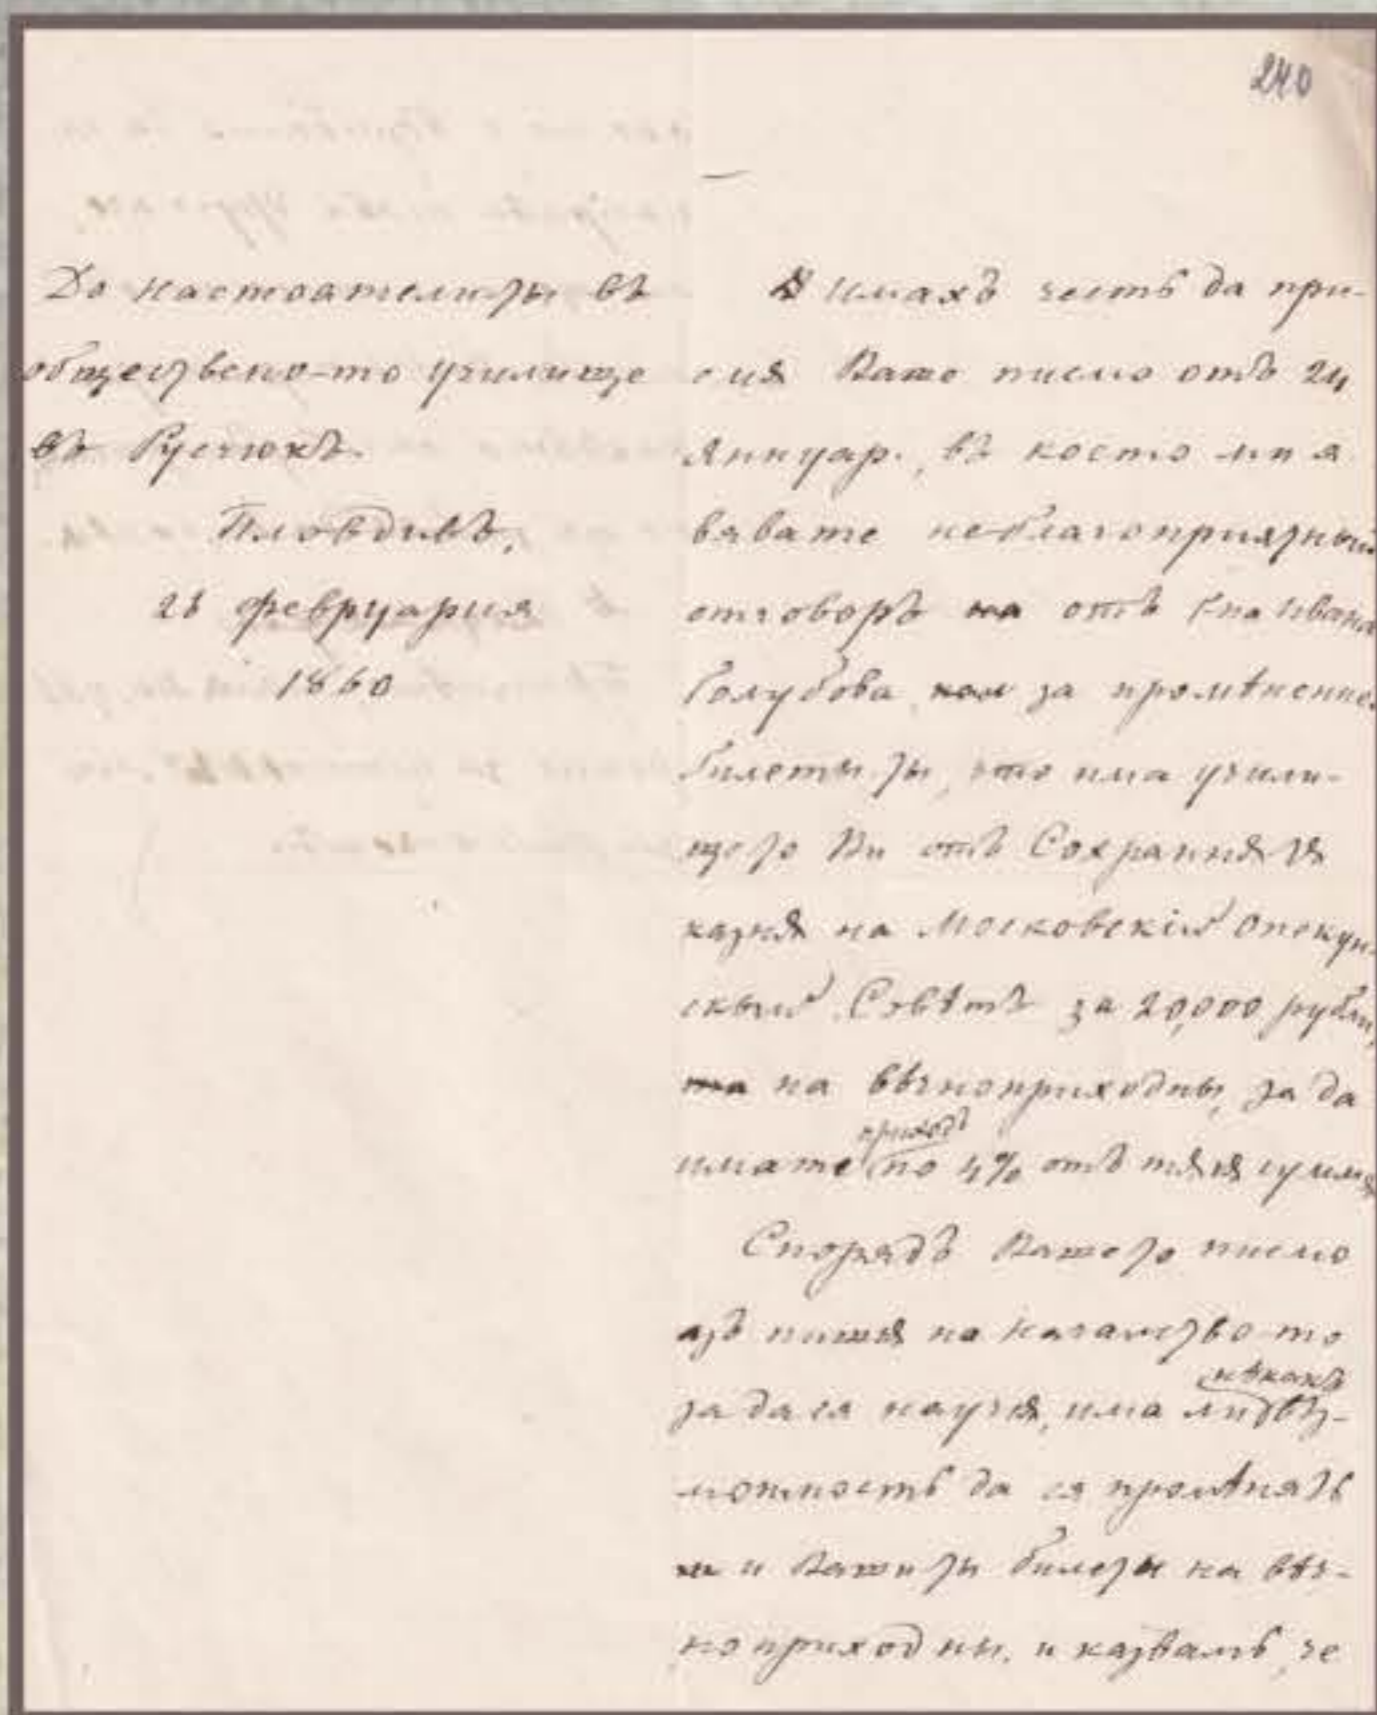 240
До настоатели-ты въ
обществено-то училище
въ Русчюкъ.
Пловдивъ,
28 февруария
1860
имахъ честь да при-
емѫ Ваше писмо отъ 24
Януар., въ което ми я
вявате неблагоприятный
отговоръ отъ Г-на Ивана
Голубова за промѣнение
билеты-ты, что има учили-
щето Ви отъ Сохраннѫтѫ
казнѫ на Московскій Опекун-
скый Совѣтъ за 20,000 рубли,
на вѣчноприходны, за да
приходъ
имате по 4% отъ тѫтѫ сумѫ
Споредъ Вашето писмо
азъ пишѫ на началство-то
нѣкакъ
за да ся научѫ, има ли въз-
можность да ся промѣнятъ
и Вашиты билеты на вѣч-
ноприходны, и казвамъ, че